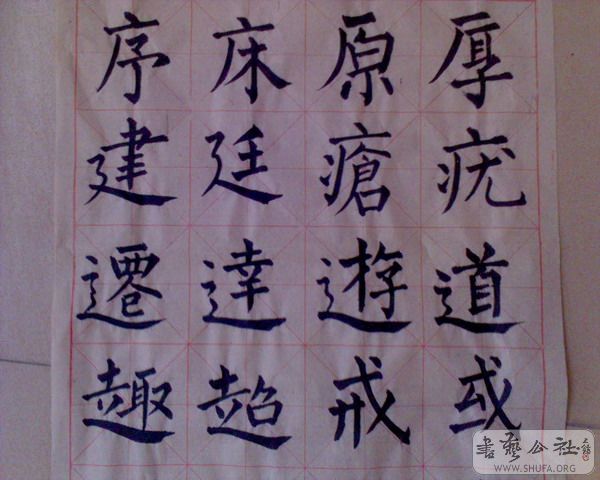 序床原厚
建廷瘡疣
遷達遊道
趣超戒或
書藝公社
WWW.SHUFA.ORG